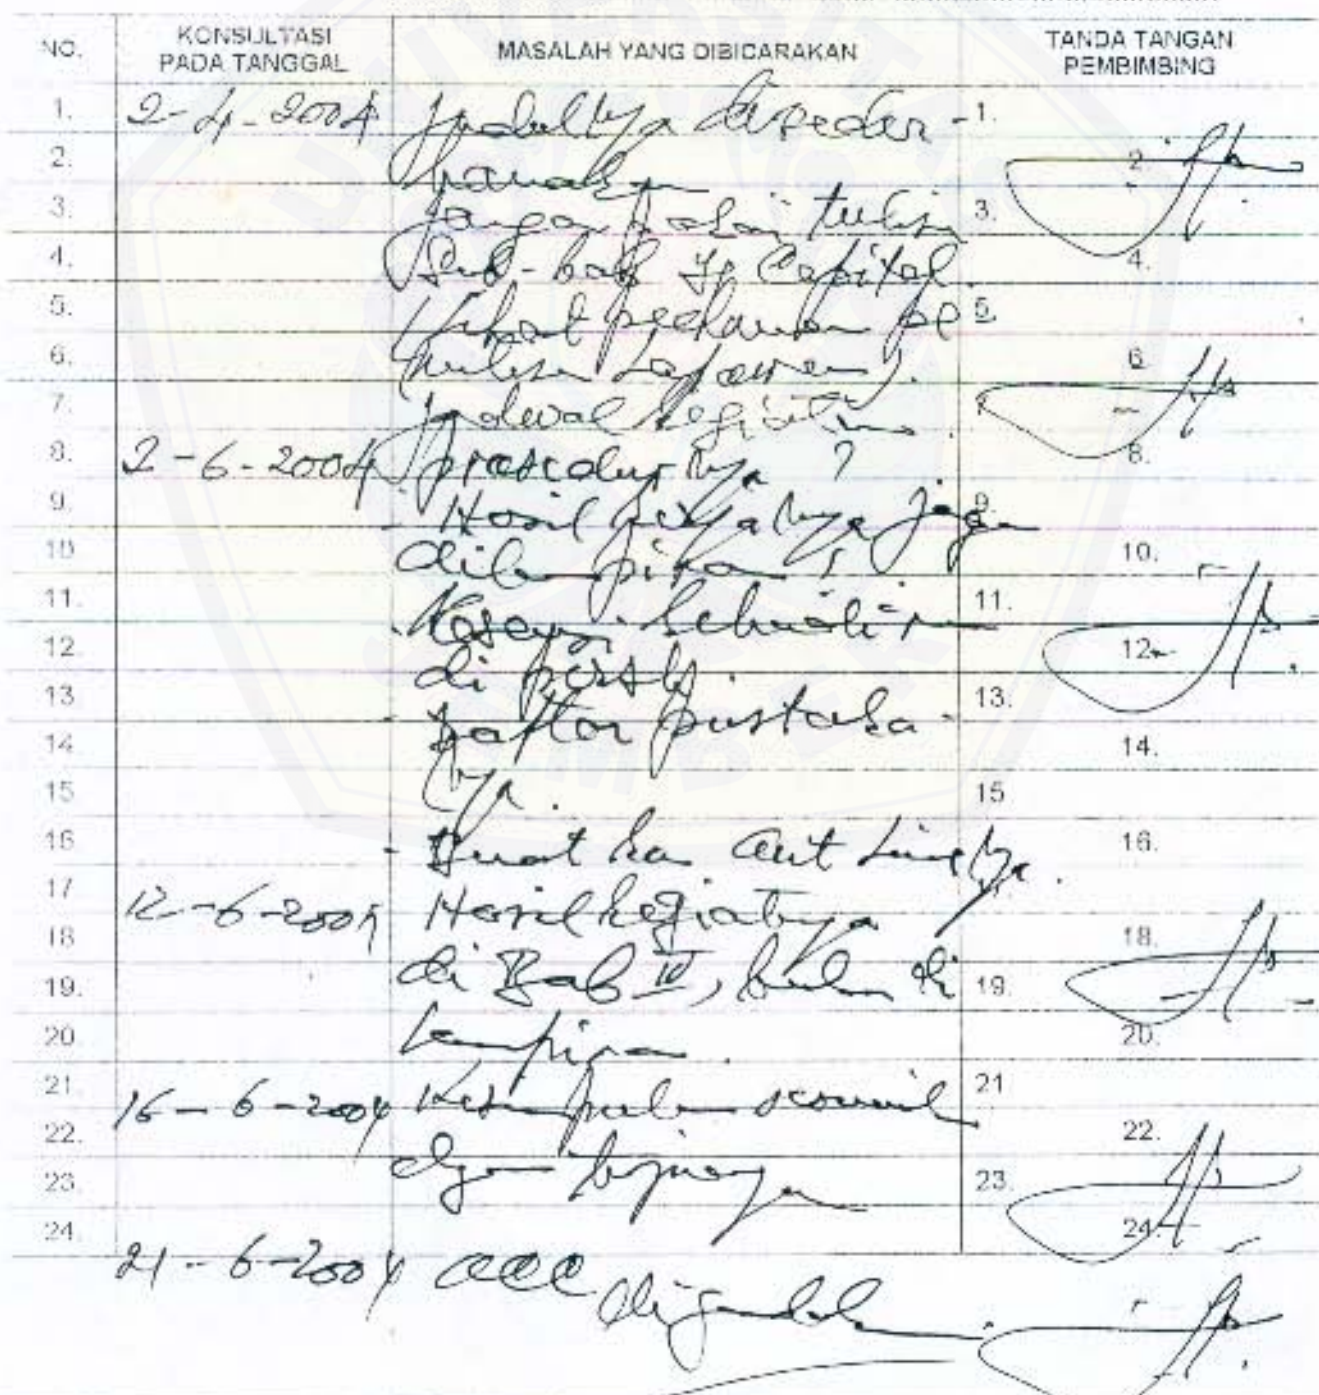 NO. KONSULTASI PADA TANGGAL MASALAH YANG DIBICARAKAN TANDA TANGAN PEMBIMBING
1. 2-4-2004 Judulnya diseder- 1.
2. hanakan 2.
3. Jangan pakai tulisan 3.
4. Sub-bab yg Capital. 4.
5. Lihat pedoman pe 5
6. nulisan Laporan). 6
7. jadwal kegiatan.
8. 2-6-2004 prosedurnya ? 8.
9. - Hasil kerjanya jangan 9.
10 dilampirkan ! 10.
11. 11.
12 di 12
13 - Daftar pustaka- 13.
14 nya. 14.
15 15
16 - Buatkan Out Linenya. 16.
17 12-6-2004 Hasil kegiatnya
18 di Bab IV, bukan di 18.
19. 19.
20 lampiran. 20.
21 16-6-2004 Kesimpulan sesuai 21
22. dgn tujuannya 22.
23. 23.
24. 24
21-6-2004 acc digandakan.